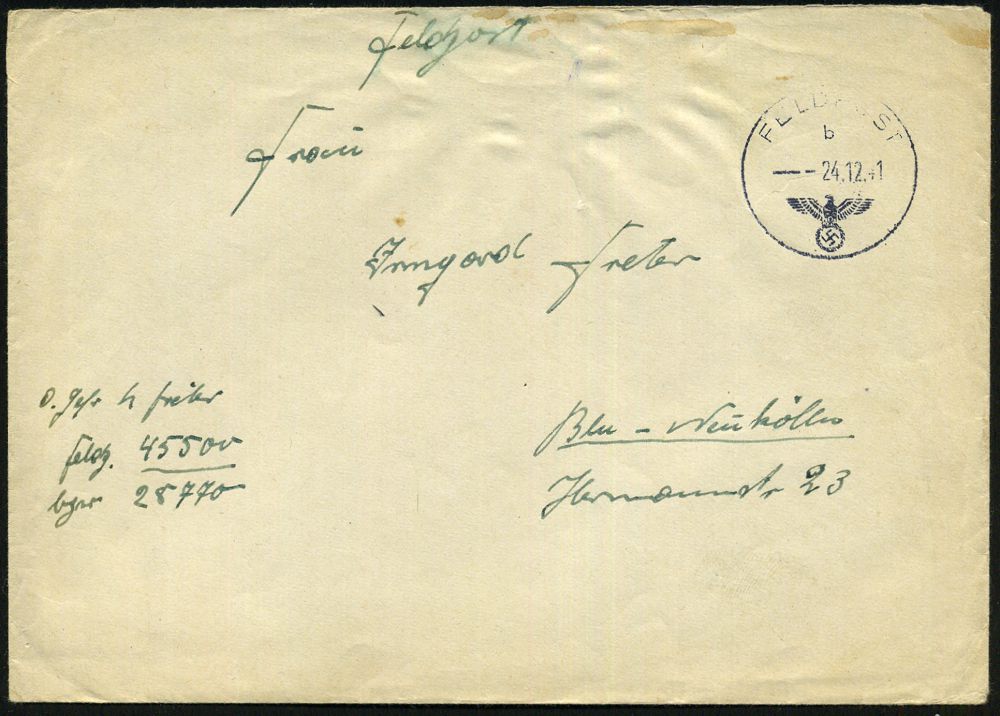 Feldpost
FELDPOST
b
24.12.41
Frau
Irmgard Freter
O. Gefr H Freter
Feldp. 45500
bzw 28770
Bln - Neukölln
Hermannstr 23